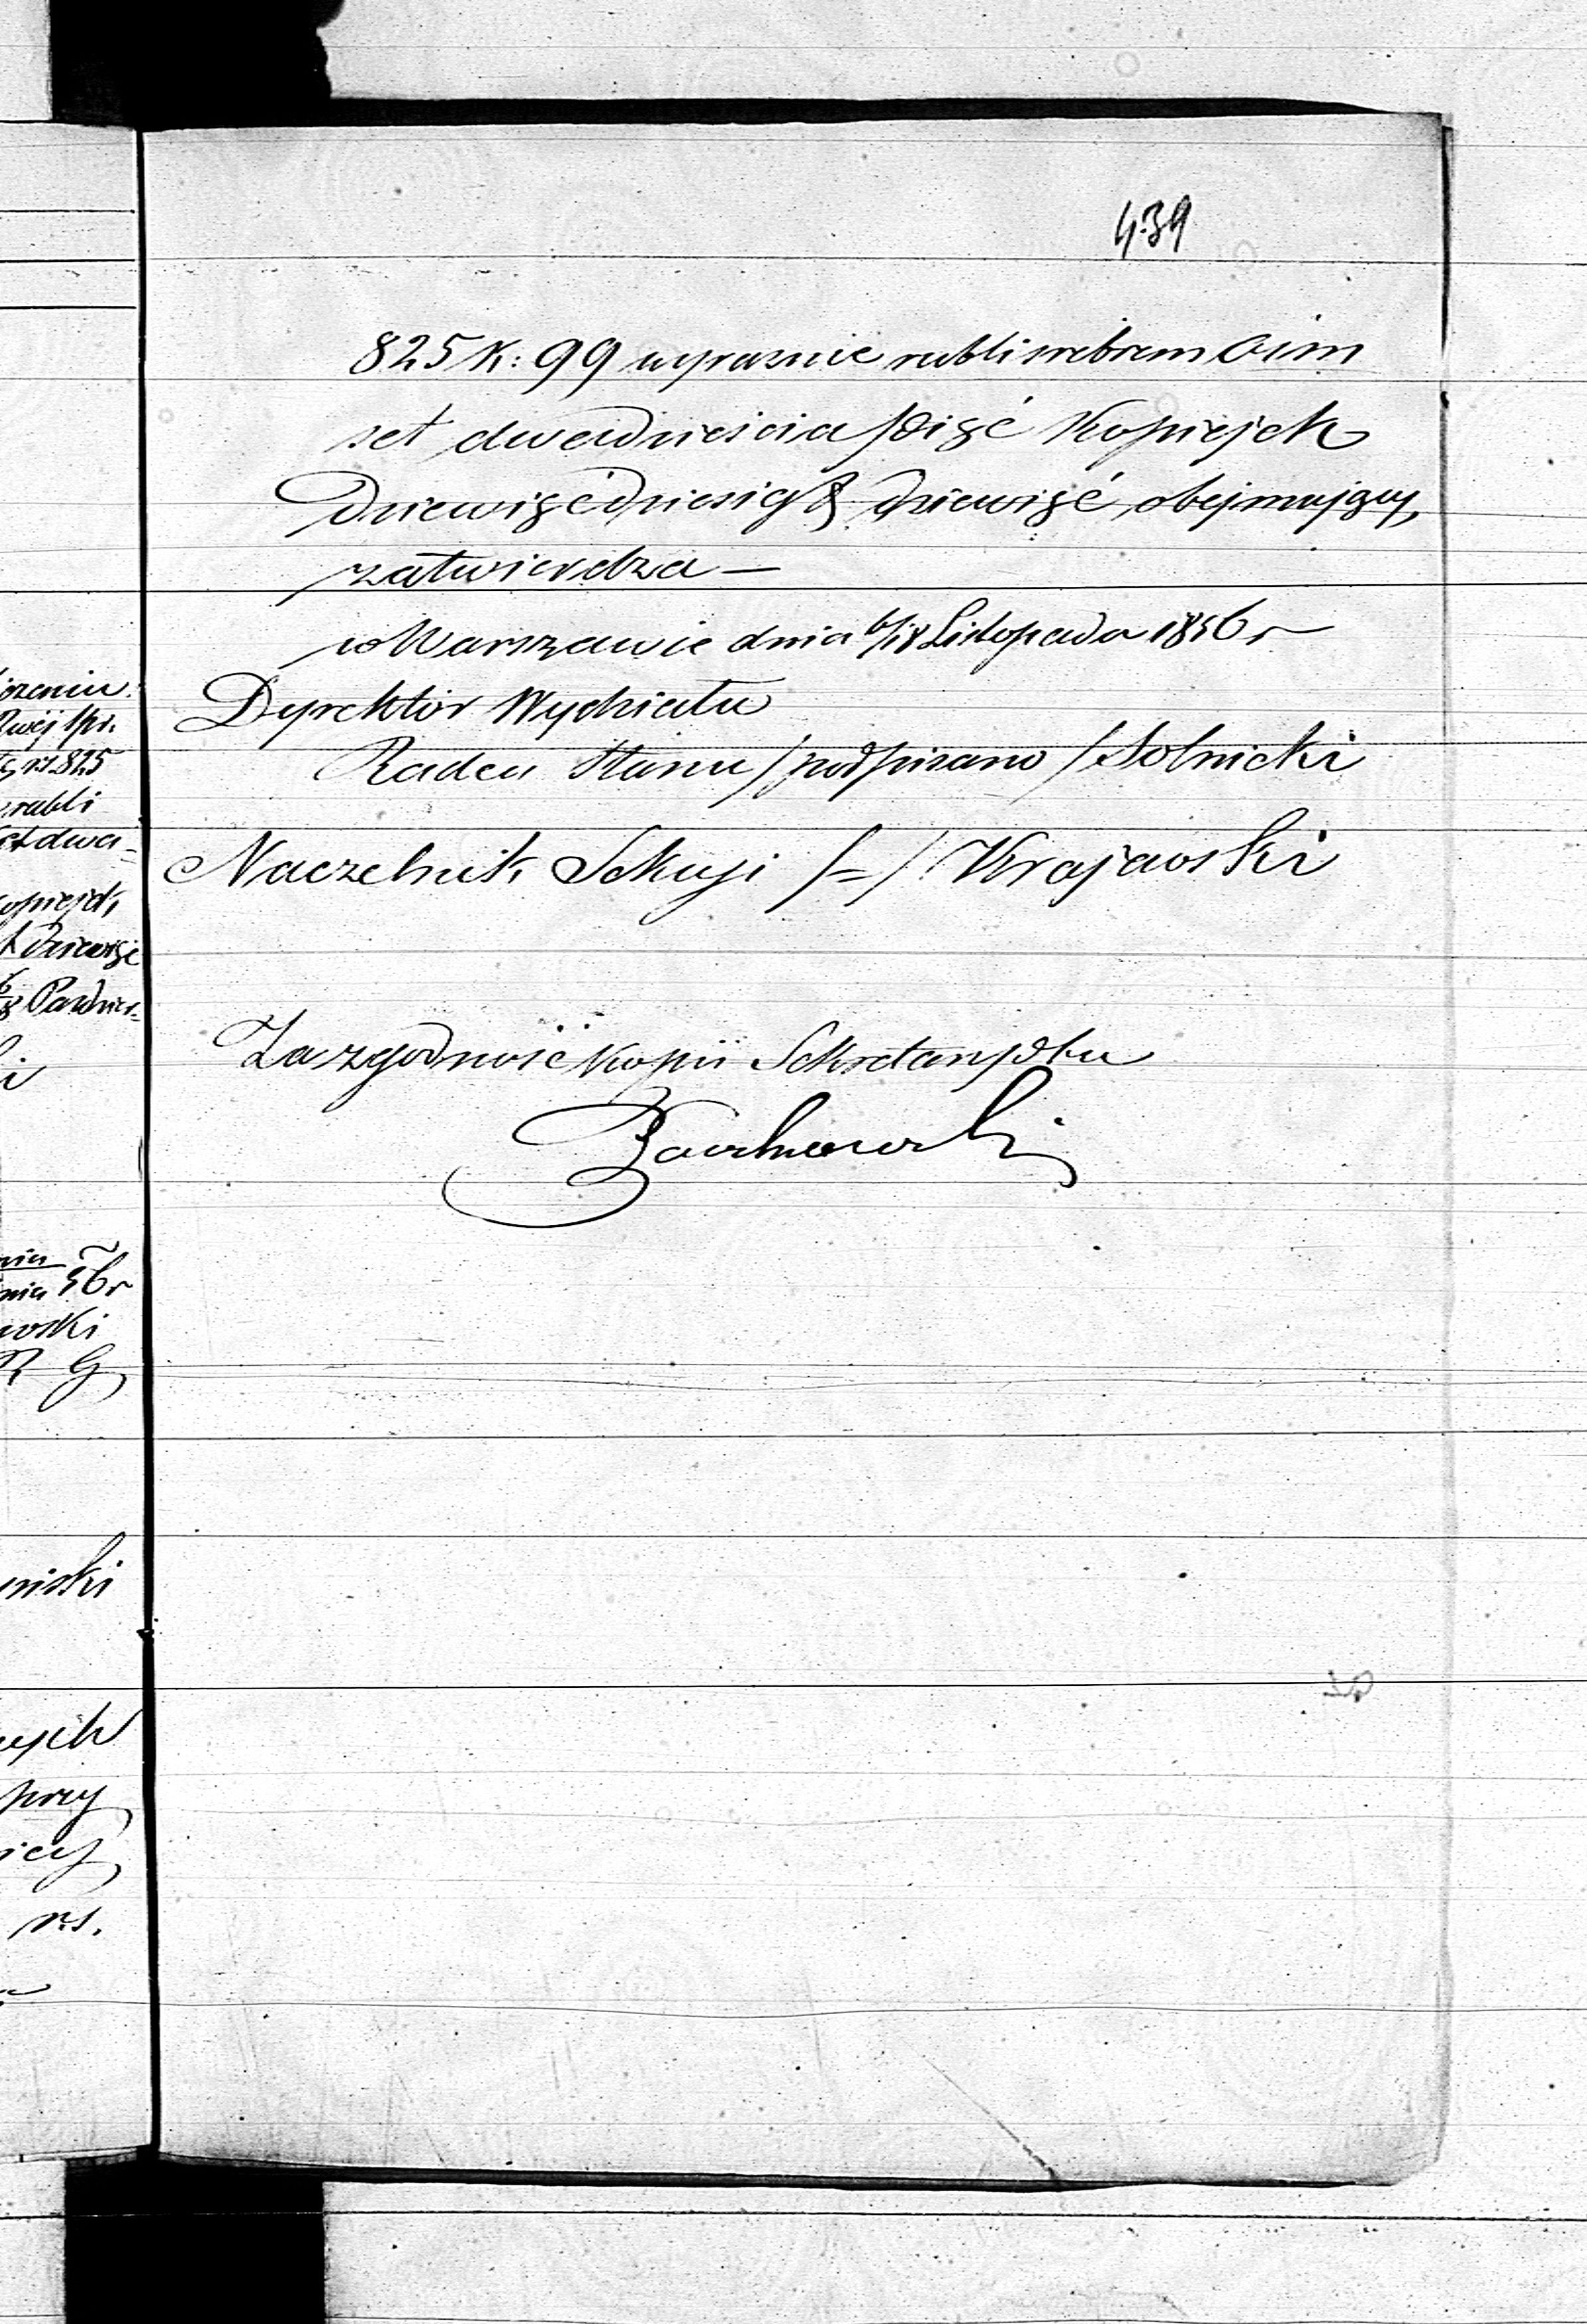 439
825 K: 99 wyraznie rubli srebrem Ośm
set dwadzieścia pięć Kopiejek
Dziewięćdziesiąt dziewięć obejmujący,
zatwierdza —
w Warszawie dnia 6/18 Listopada 1856 r
Dyrektor Wydziału
Radca Stanu /podpisano/ Solnicki
Naczelnik Sekcyi /=/ Krajewski
Za zgodność kopii Sekretarz
ozeniu
825
rubli
set dwa-
kopiejek
t dziewięć
nia 56 r
wski
nych
przy
rs.